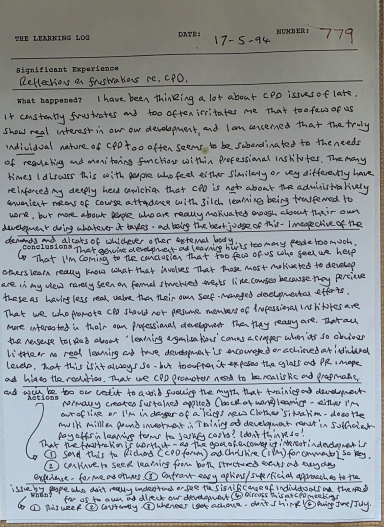 THE LEARNING LOG DATE: 17-5-94 NUMBER: 779
Significant Experience
Reflections on frustrations re. CPD.
What happened? I have been thinking a lot about CPD issues of late.
It constantly frustrates and too often irritates me that too few of us
show real interest in our own development, and I am concerned that the truly
individual nature of CPD too often seems to be subordinated to the needs
of regulating and monitoring functions within Professional Institutes. The many
times I discuss this with people who feel either similarly or very differently have
reinforced my deeply held conviction that CPD is not about the administratively
convenient means of course attendance with zilch learning being transferred to
work, but more about people who are really motivated enough about their own
development doing whatever it takes - and being the best judge of this - irrespective of the
demands and dictats of whichever other external body.
Conclusions That genuine development and learning hurts too many people too much.
That I'm coming to the conclusion that too few of us who seek to help
others learn really know what that involves That those most motivated to develop
are in my view rarely seen on formal structured events like courses because they perceive
these as having less real value than their own self-managed developmental efforts.
That we who promote CPD should not presume members of Professional Institutes are
more interested in their own professional development than they really are. That all
the nonsense talked about 'learning organisations' comes a cropper when it's so obvious
little or no real learning and true development is encouraged or achieved at individual
levels. That this isn't always so - but too often it exposes the gloss and PR image
and hides the realities. That we CPD promoters need to be realistic and pragmatic,
and wish to our credit to avoid pushing the myth that training and development
Actions normally creates sustained applied (back at work) learning - either I'm
out of line or I'm in danger of a 'King's new Clothes' situation - does the
multi million pound investment in Training and development result in sufficient
payoffs in learning terms to justify costs? I don't think so!
That the frustration is worth it - as the goal of securing interest in development is
① Send this to Richard (CPD forum) and Christine (IPM) for comments so key.
② Continue to seek learning from both structured events and everyday
experience - for me and others ③ Confront easy options/superficial approaches to the
issue by people who don't really understand or see the significance of individuals and the need
for us to own and direct our development ④ Discuss this at CPD meetings
When?
① This week ② Constantly ③ whenever I get a chance - don't shirk! ④ During June/July.